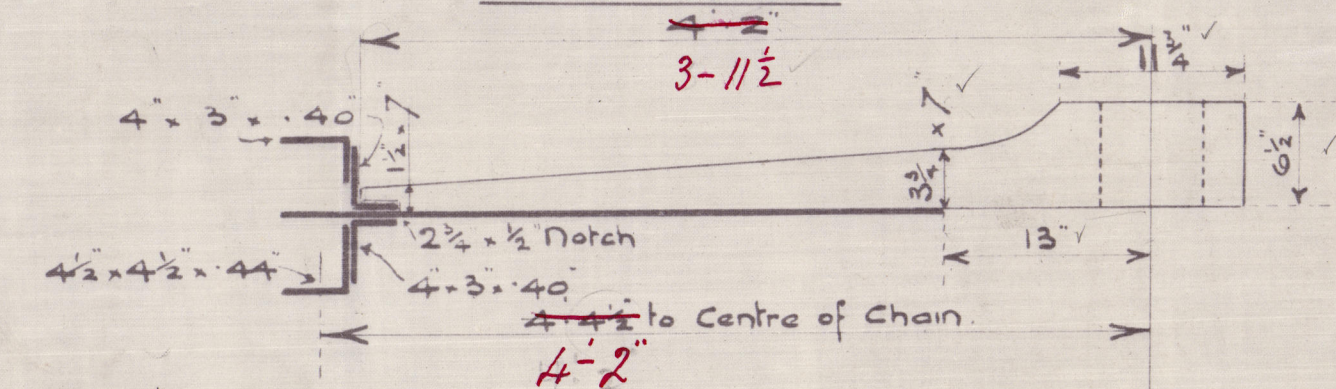 4'-2"
3-11½
11¾"
4" × 3" × .40"
1½" × 7"
3¾ × 7"
6½"
2¾ × ½" Notch
13"
4½" × 4½" × .44"
4" × 3" × .40"
4'-4½" to Centre of Chain.
4'-2"